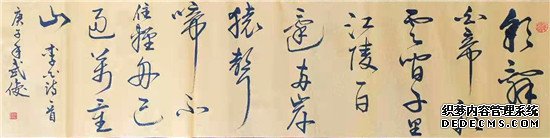 朝辭
白帝
雲间千里
江陵一日
還两岸
猿聲
啼不
住輕舟已
過萬重
山 李白诗一首
庚子年武俊
织梦内容管理系统
DEDECMS.COM